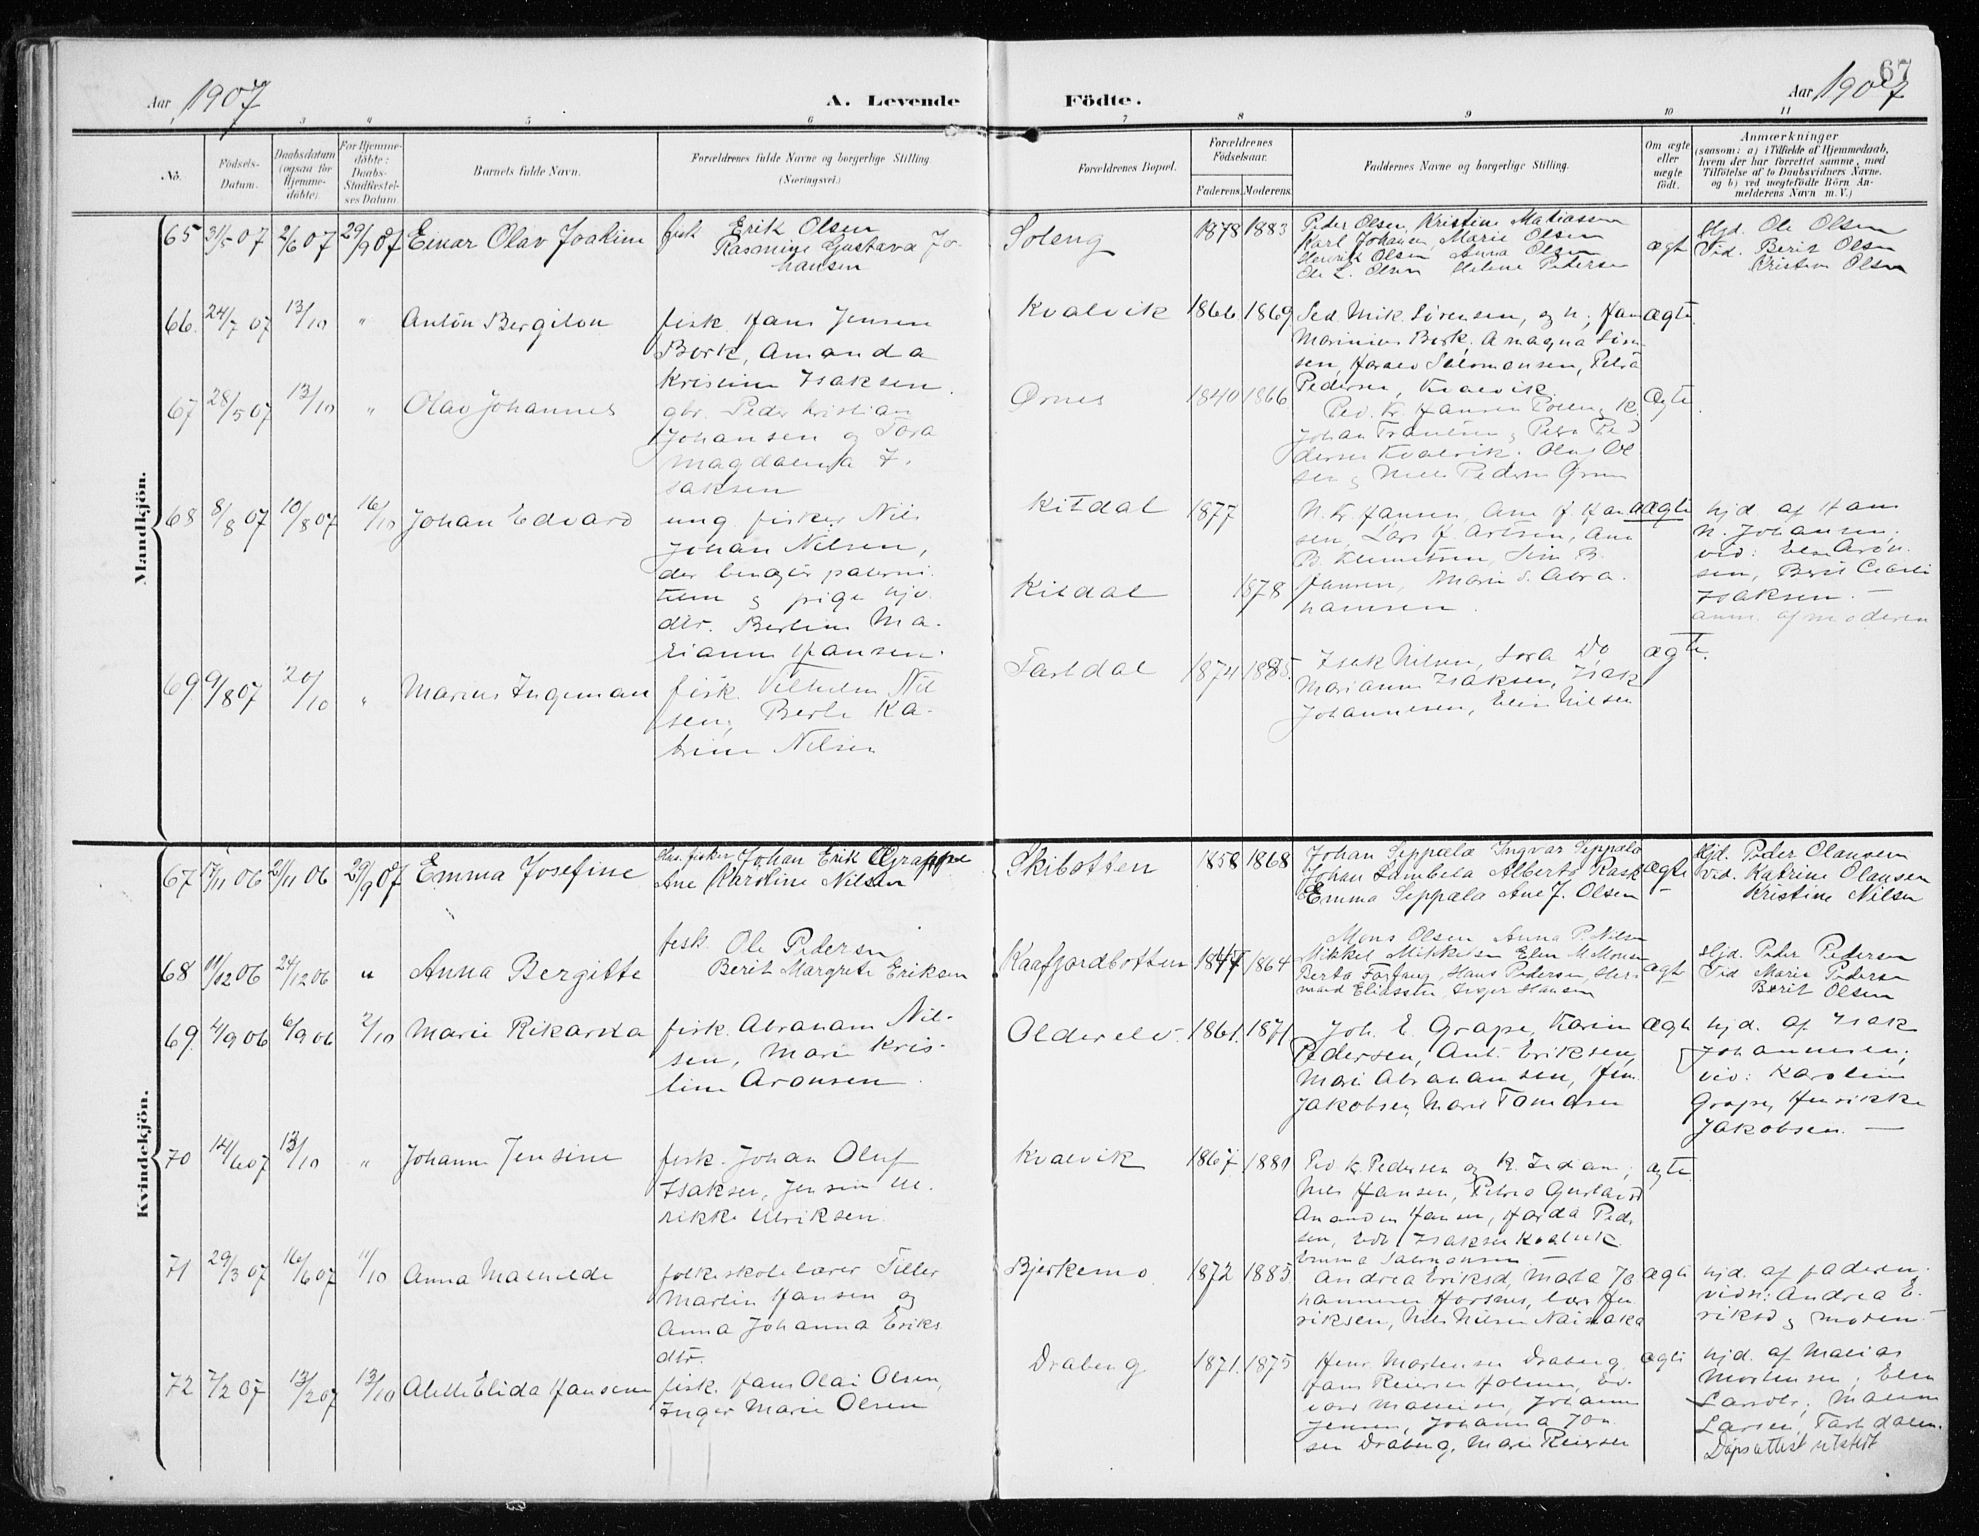 67
Aar 1907
A. Levende Födte.
Aar 1907
1 3 4 5 6 7 8 9 10 11
No.
Födsels-Datum.
Daabsdatum (ogsaa for Hjemme-döbte).
For Hjemme-döbte: Daabs-Stadfæstel-ses Datum.
Barnets fulde Navn.
Forældrenes fulde Navne og borgerlige Stilling. (Næringsvei.)
Forældrenes Bopæl.
Forældrenes Födselsaar.
Faderens. Moderens.
Faddernes Navne og borgerlige Stilling.
Om ægte eller uægte födt.
Anmærkninger
(saasom: a) i Tilfælde af Hjemmedaab,
hvem der har forrettet samme, med
Tilföielse af to Daabsvidners Navne.
og b) ved uægtefödte Börn An-
melderens Navn m.V.)
Mandkjön.
65 31/5 07 2/6 07 29/9 07 Einar Olav Joakim
fisk Erik Olsen
Rasmine Gustava Jo-
hansen
Soleng 1878 1883
Peder Olsen, Kristine Matiassen
Karl Johansen, Marie Olsen
Henrik Olsen Anna Olsen
Ole L. Olsen Helene Pedersen
ægt
Hjd. Ole Olsen
Vid. Berit Olsen
Kristian Olsen
66. 24/7 07 13/10 " Anton Bergiton
fisk. Hans Jensen
Bork, Amanda
Kristine Isaksen.
Kvalvik 1866 1869
Ped. Mik. Sørensen, og h; Han
Marinius Bork. Amagna Sim
sen, Harald Salomonsen, Petra
Pedersen, Kvalvik.
ægte.
67 28/5 07 13/10 " Olav Johannes
gbr. Peder Kristian
Johansen og Tora
Magdalena I.
saksen
Ørnes 1840 1866
Ped. Kr. Hansen
Johan
dersen Kvalvik. Olav Ol
sen Nils Pedersen
Ægte.
68 8/8 07 10/8 07 16/10 Johan Edvard
ung. fisker Nils
Johan Nilsen,
der benægter paterni.
teten og pige hjv.
dtr. Berline Ma-
rianne Hansen.
Kitdal 1877
Kitdal 1878
N. Kr. Jansen, Ane J. Han
sen, Lars H. Artsen, Ane
B. Klemetsen, Sim B.
Jansen, Marie S. Abra
hamsen.
uægte
hjd. af Hans
N. Johansen;
vid: Elen Aron.
sen, Berit Cecilie
Isaksen. —
anm. af moderen
69 9/8 07 20/10 " Marius Ingeman
fisk. Vilhelm Nil
sen, Berte Ka-
trine Nilsen
Tarldal 1874 1885.
Isak Nilsen, Lora Do
Marianne Isaksen, Isak
Johannesen, Elen Nilsen
ægte.
Kvindekjön.
67 17/11 06 21/11 06 29/9 07 Emma Josefine
fisker Johan Erik Grappe
Ane Karoline Nilsen
Skibotten 1858 1868
Johan Seppæla Ingvar Seppæla
Johan Lambela Alberta Rask
Emma Seppæla Ane J. Olsen
ægte
Hjd. Peder Olaussen
vid. Katrine Olaussen
Kristine Nilsen
68 11/12 06 24/12 06 " Anna Bergitte
fisk. Ole Pedersen
Berit Margrete Eriksen
Kaafjordbotten 1847 1864
Mons Olsen Anna P. Nilsen
Mikkel Mikkelsen Elen M. Monsen
Berta Forfang, Hans Pedersen, Her-
mand Eliassen, Inger Hansen
ægt
Hjd. Peder Pedersen
Vid Marie Pedersen
Berit Olsen
69. 4/9 06 6/9 06 2/10 Marie Rikarda
fisk. Abraham Nil-
sen, Marie Kris-
tine Aronsen.
Olderelv. 1861. 1871
Joh. E. Grape, Karin
Pedersen, Ant. Eriksen,
Marie Abrahamsen, Jen
Jakobsen, Marie Tomasen
ægte
hjd. af Isak
Johannesen;
vid: Karoline
Grape, Henrikke
Jakobsen. —
70 14/6 07 13/10 " Johanne Jensine
fisk. Johan Oluf
Isaksen, Jensine Ul.
rikke Ulriksen.
Kvalvik 1867. 1881
Ped. Kr. Pedersen og K. Indiane;
Nils Hansen, Petra Gustava
Amandus Hansen, Harda Peder
sen, Edv. Isaksen Kvalvik
Emma Salmonsen —
ægte
71 29/3 07 16/6 07 11/10 Anna Mathilde
folkeskolelærer Tiller
Martin Hansen og
Anna Johanna Eriks
dtr.
Bjerkemo. 1872 1885
Andrea Eriksd, Marta Jo
hannesen Horsnes, lær. Hen
riksen, Nils Nilsen
ægte
hjd. af faderen.
vidn: Andrea E.
riksd og moren
72 7/2 07 13/2 07 13/10 Alette Elida Hansen
fisk. Hans Olai Olsen,
Inger Marie Olsen
Draberg 1871. 1875
Henr. Mortensen Draberg.
Hans Reiersen Holmen, Ed.
vard Mathisen, Johanne
Jensen, Johanna Jon
sen Draberg, Marie Reiersen
ægte
hjd. af Matias
Mortensen; Elen
Larsdtr, Malene
Larsen, Tarldalen.
Dåpsattest utstedt